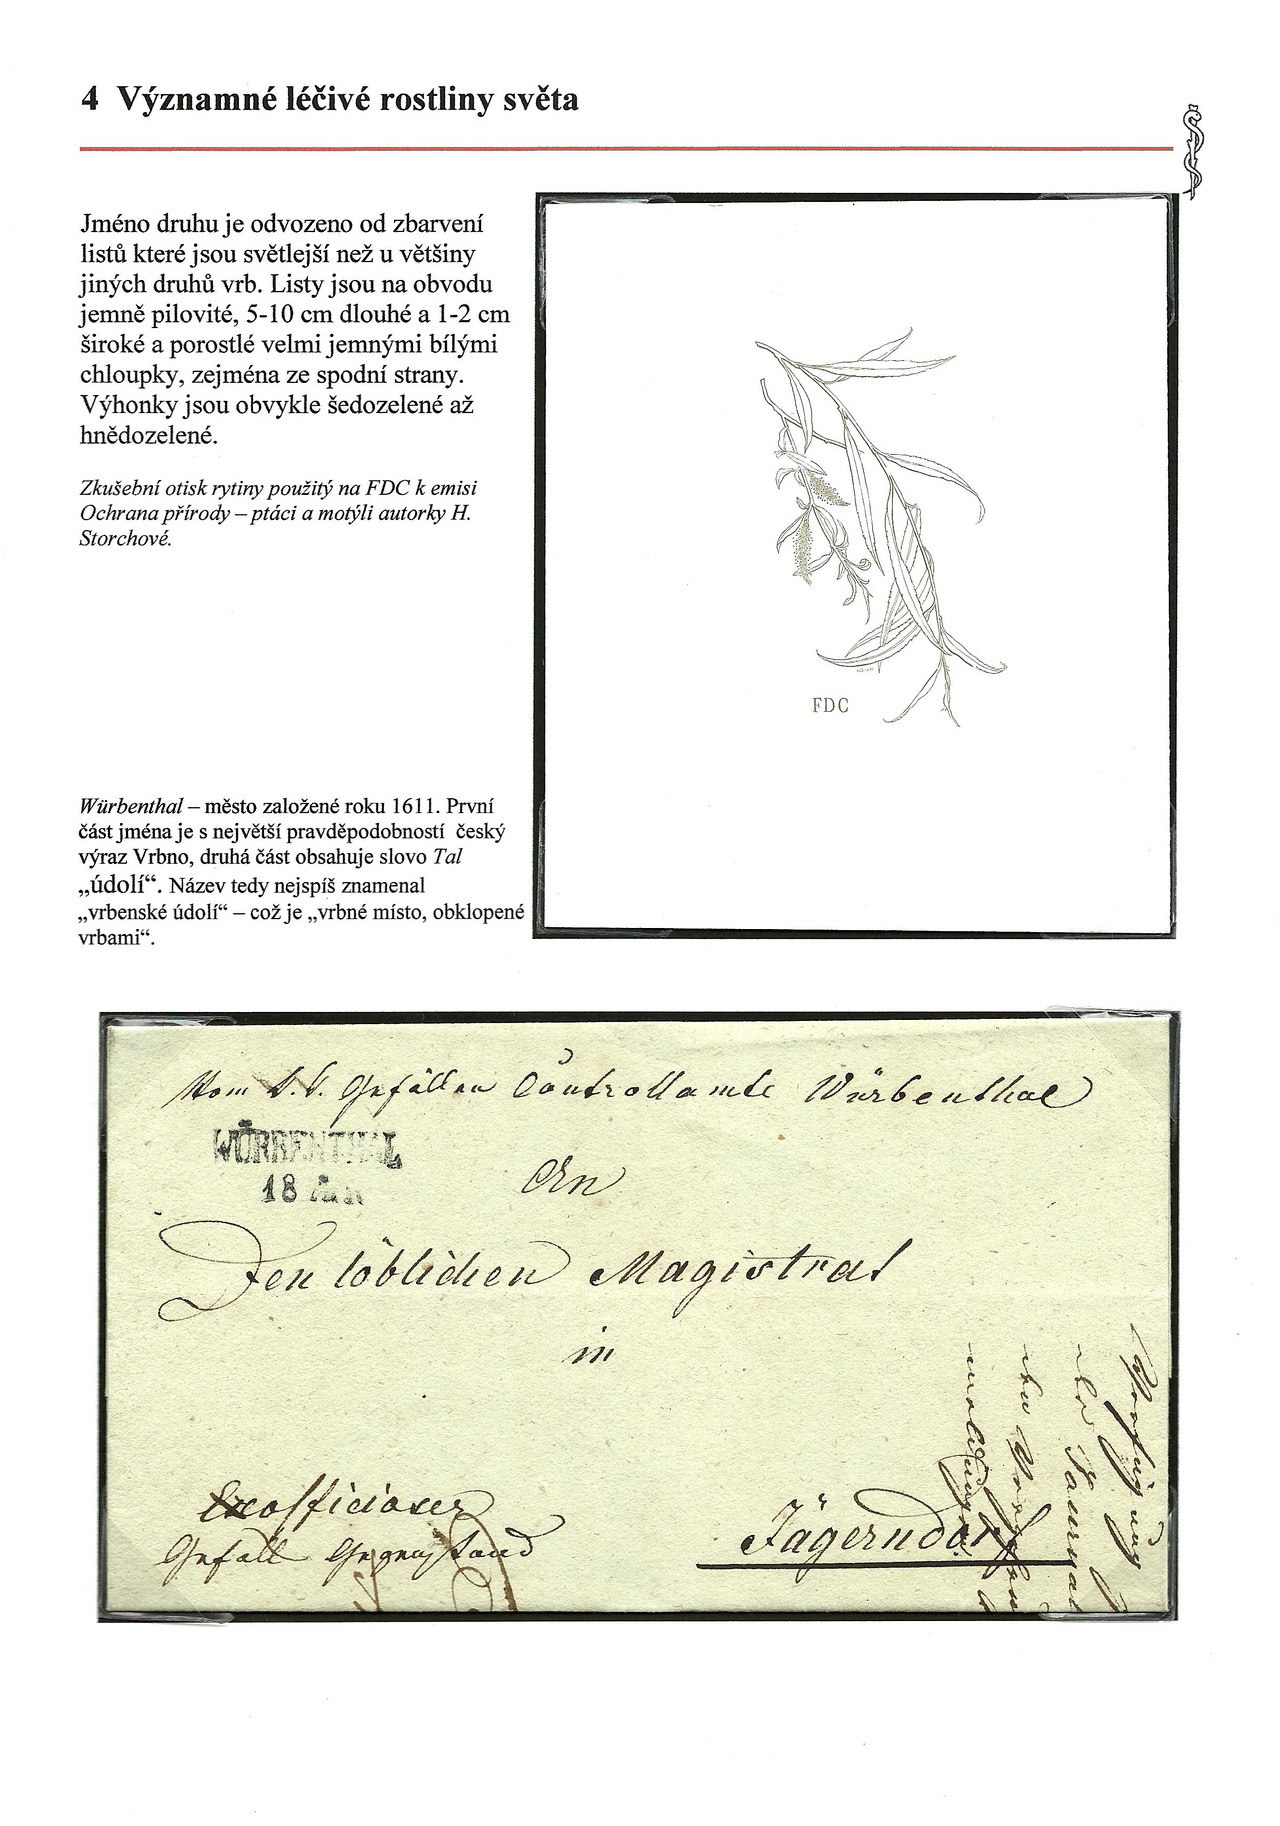 4 Významné léčivé rostliny světa
Jméno druhu je odvozeno od zbarvení
listů které jsou světlejší než u většiny
jiných druhů vrb. Listy jsou na obvodu
jemně pilovité, 5-10 cm dlouhé a 1-2 cm
široké a porostlé velmi jemnými bílými
chloupky, zejména ze spodní strany.
Výhonky jsou obvykle šedozelené až
hnědozelené.
Zkušební otisk rytiny použitý na FDC k emisi
Ochrana přírody – ptáci a motýli autorky H.
Storchové.
FDC
Würbenthal – město založené roku 1611. První
část jména je s největší pravděpodobností český
výraz Vrbno, druhá část obsahuje slovo Tal
„údolí“. Název tedy nejspíš znamenal
„vrbenské údolí“ – což je „vrbné místo, obklopené
vrbami“.
Vom k. k. Gefällen Controllamte Würbenthal
WÜRBENTHAL
18
An
Den löblichen Magistrat
in
Exofficioser
Gefälls Gegenstand
Jägerndorf